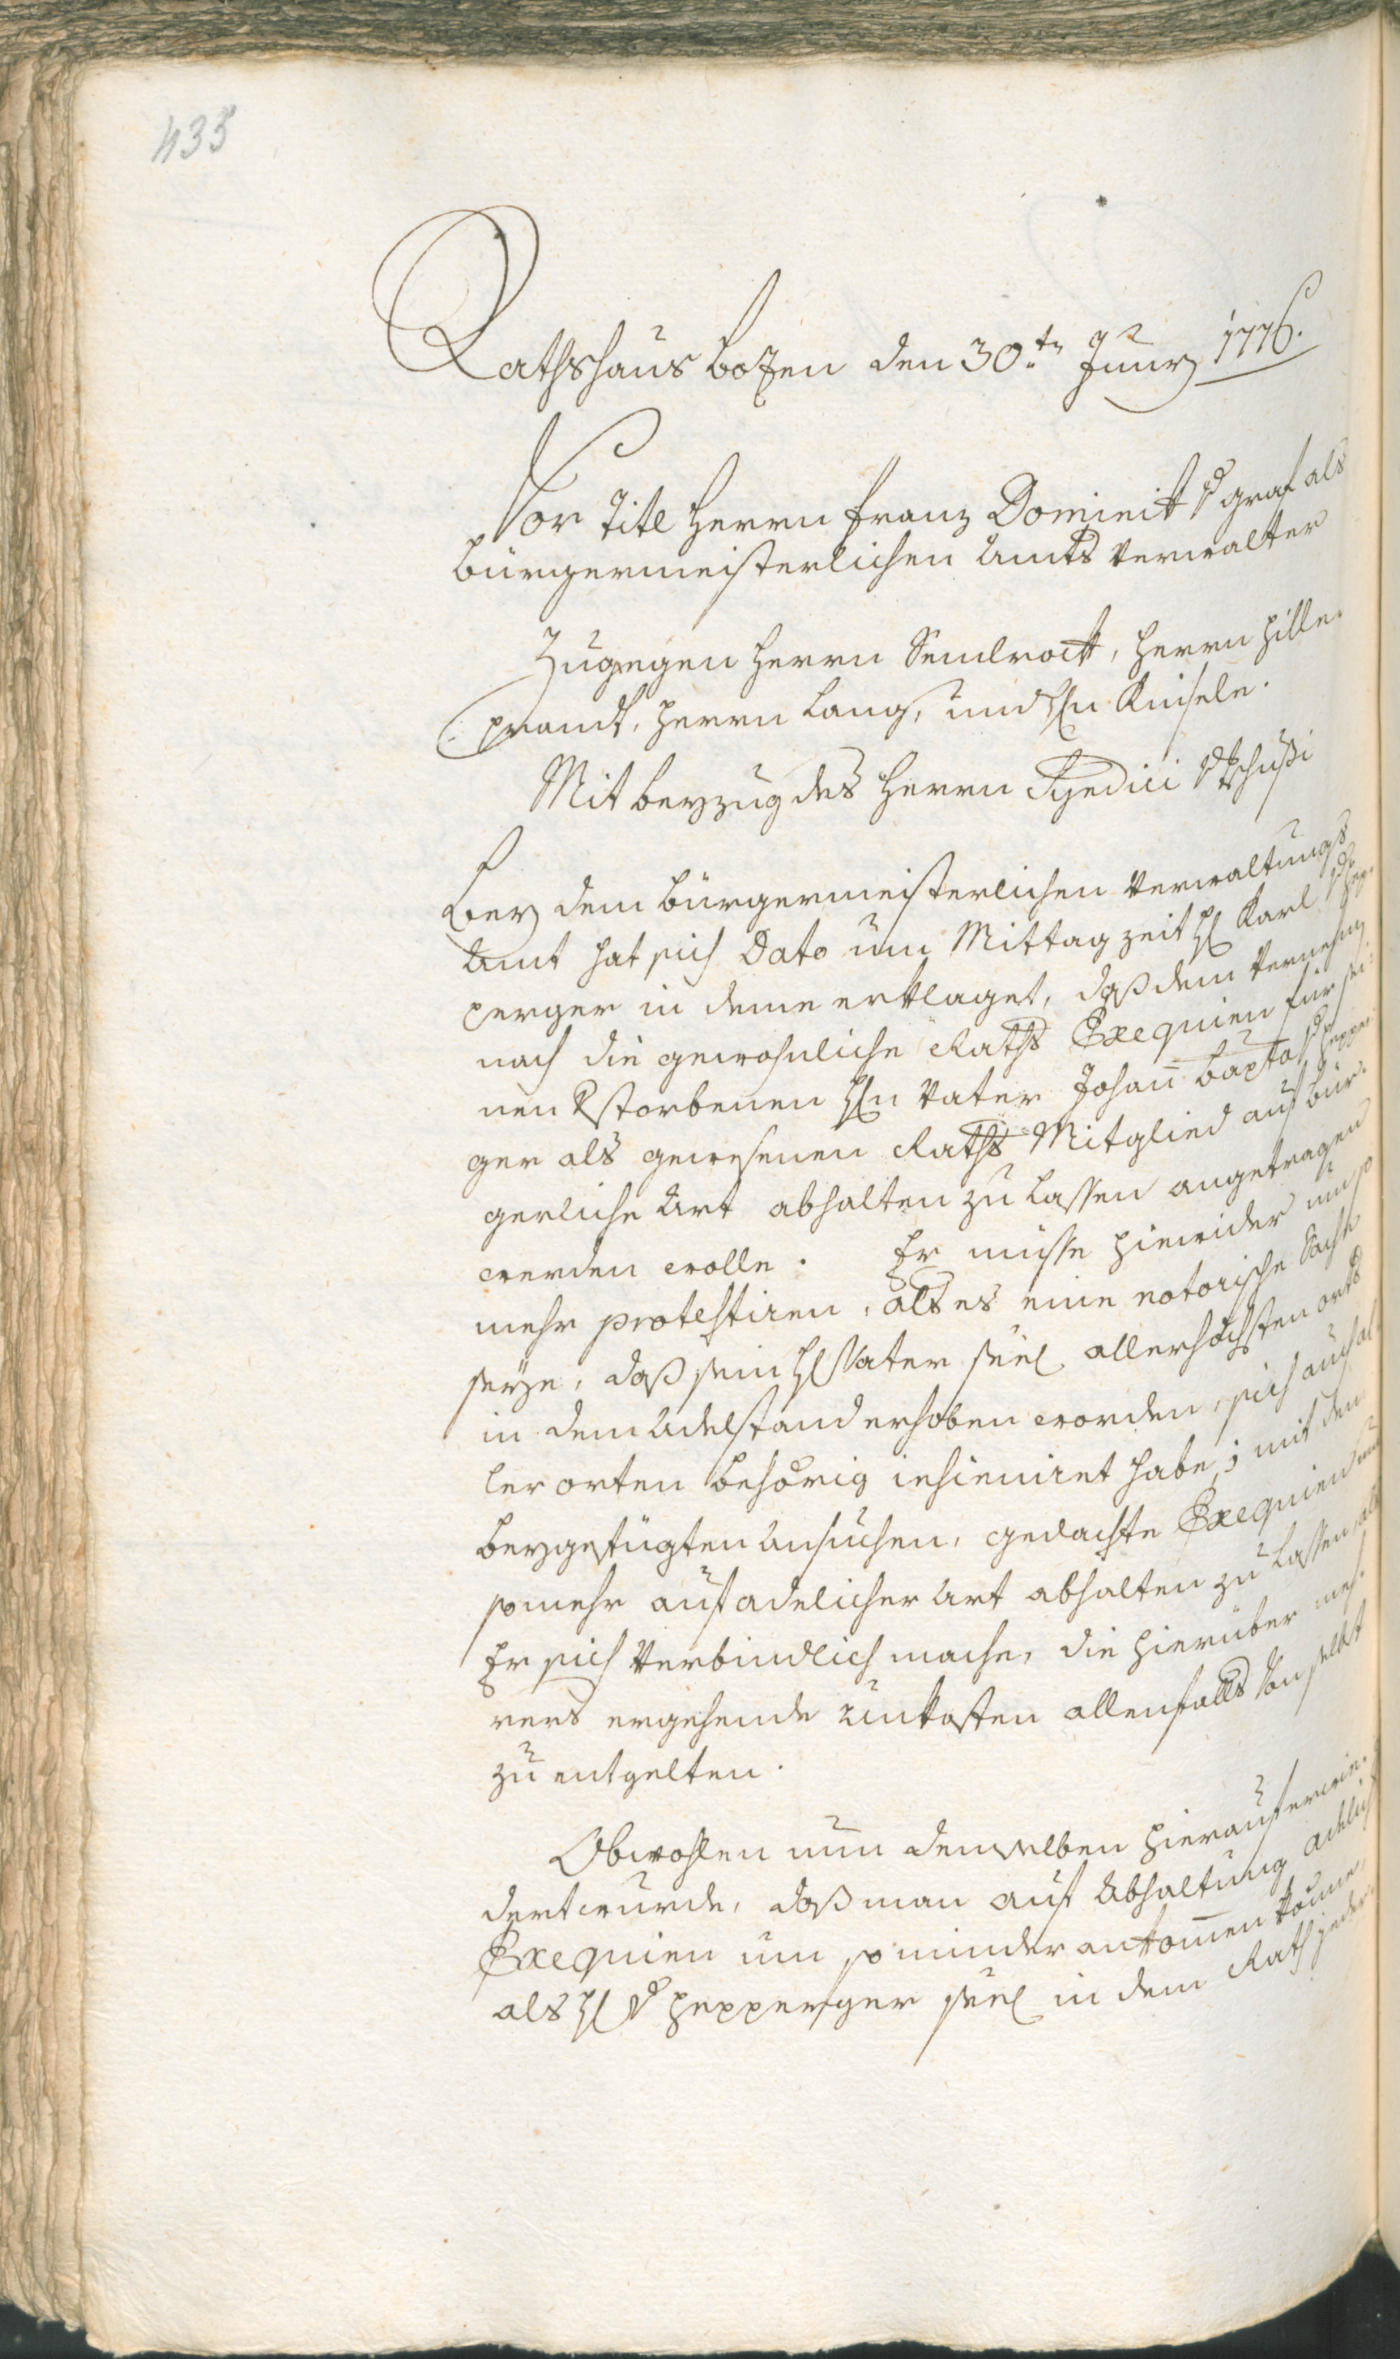 435
Rathshaus Bozen den 30.tn Junÿ 1776.
Vor Titl Herrn Franz Dominikh v. Graf als
Bürgermeisterlichen Amts Verwalter
Zugegen Herrn Sendrockh, Herrn Hille¬
prandt, Herrn Lang, und Hn Kniesele.
Mit beyzug des Herrn Syndici v. Tschussi
Bey dem Bürgermeisterlichen Verwaltungs
Amt hat sich Dato um Mittag zeit Hl Karl v. Hep¬
perger in deme erklaget, daß dem Vernehmen
nach die gewohnliche Raths Exequien für sei¬
nen verstorbenen Hn Vater Johann Bapta v. Hepper
ger als gewesenen Raths Mitglied auf Bür¬
gerliche Art abhalten zu lassen angetragen
werden wolle. Er müsse hierwider um so
mehr protestiren, als es eine notorische Sache
seye, daß sein Hl Vater seel. allerhöchsten orts
in dem Adelstand erhoben worden, sich auch al
ler orten behörig insinuiret habe; mit dem
beygefügten Ansuchen, gedachte Exequien um
somehr auf adelicher Art abhalten zu lassen, als
Er sich Verbindlich mache, die hierüber meh¬
rers ergehende Unkosten allenfalls von selbst
zu entgelten.
Obwohlen nun demselben hierauf erwie¬
dert wurde, daß man auf Abhaltung adelich
Exequien um so minder ankommen könne,
als Hl v. Hepperger seel. in dem Rath jeder¬